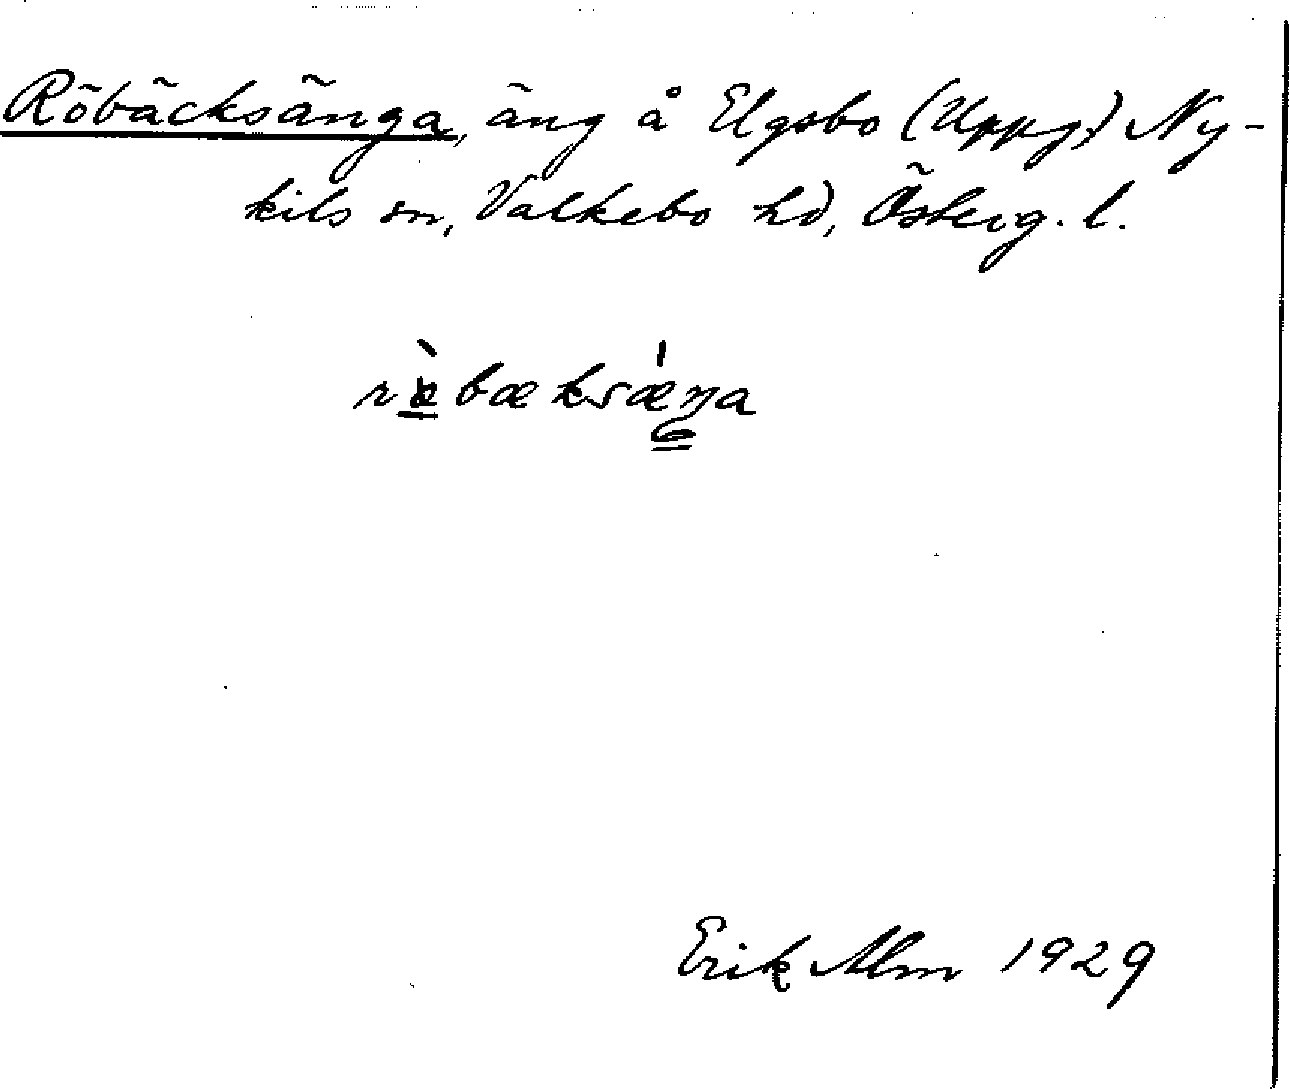 Röbäcksänga, äng å Elgsbo (Uppg.) Ny-
kils sn, Valkebo hd, Österg. l.
bæksæŋa
Erik Alm 1929